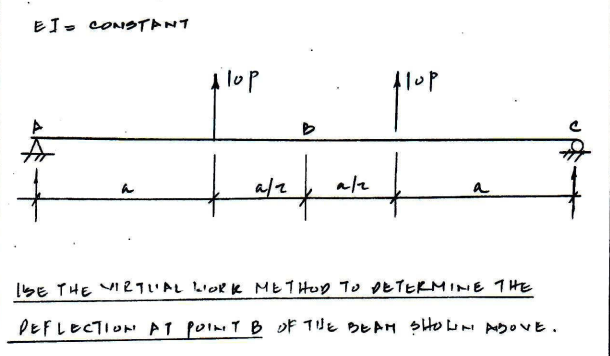 EI = CONSTANT
10P 10P
A B C
a a/2 a/2 a
USE THE VIRTUAL WORK METHOD TO DETERMINE THE
DEFLECTION AT POINT B OF THE BEAM SHOWN ABOVE.